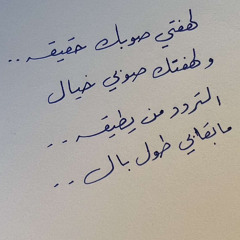 لهفتي صوبك حقيقه ..
ولهفتك صوبي خيال
التردد من يطيقه ..
ما بقابي طول بال ..